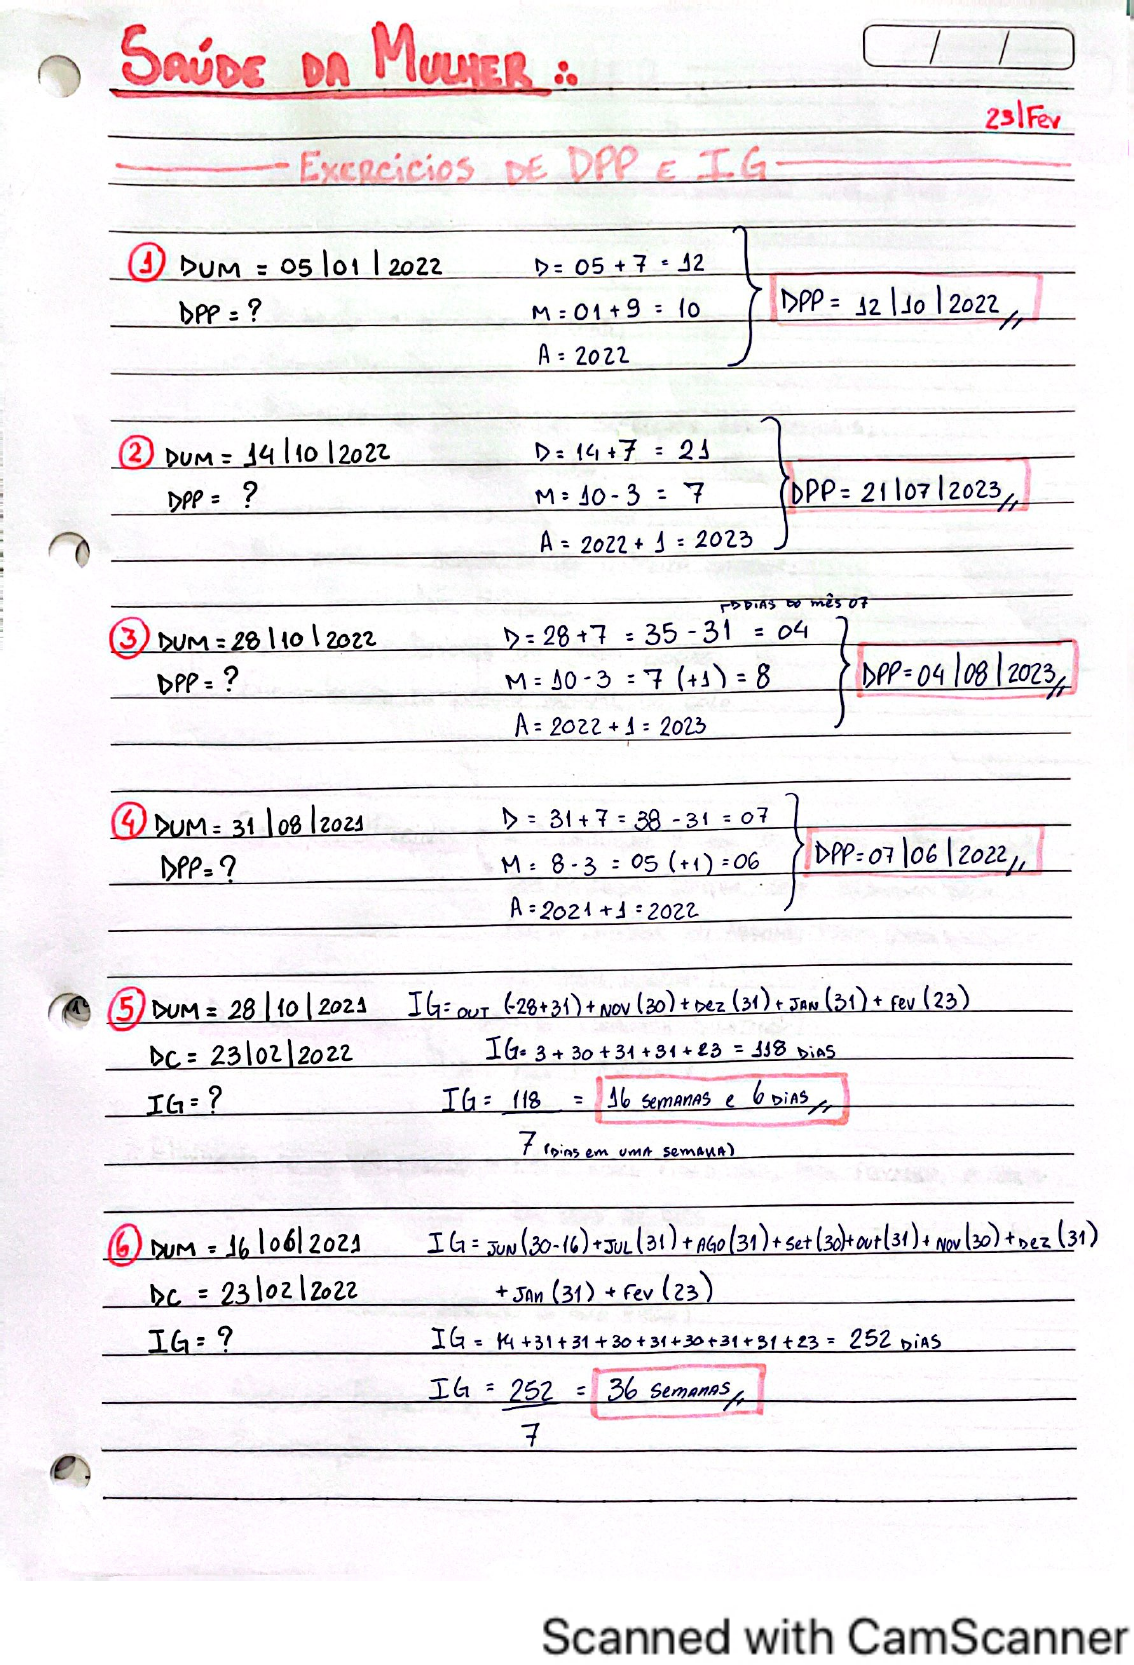 SAÚDE DA MULHER
/ /
23/Fev
EXERCICIOS DE DPP E IG
1 DUM = 05/01/2022 D= 05+7 = 12
DPP = ? M= 01+9 = 10 DPP= 12/10/2022
A= 2022
2 DUM = 14/10/2022 D= 14+7 = 21
DPP = ? M= 10-3 = 7 DPP= 21/07/2023
A= 2022+1 = 2023
DIAS DO MÊS 07
3 DUM = 28/10/2022 D= 28+7 = 35-31 = 04
DPP = ? M= 10-3 = 7 (+1) = 8 DPP=04/08/2023
A= 2022+1 = 2023
4 DUM = 31/08/2021 D= 31+7 = 38-31 = 07
DPP= ? M= 8-3 = 05 (+1) = 06 DPP=07/06/2022
A=2021+1=2022
5 DUM = 28/10/2021 IG= OUT (-28+31)+NOV(30)+DEZ(31)+JAN(31)+FEV(23)
DC = 23/02/2022 IG= 3+30+31+31+23 = 118 DIAS
IG= ? IG= 118 = 16 SEMANAS e 6 DIAS
7 (DIAS EM UMA SEMANA)
6 DUM = 16/06/2021 IG= JUN(30-16)+JUL(31)+AGO(31)+SET(30)+OUT(31)+NOV(30)+DEZ(31)
DC = 23/02/2022 +JAN(31)+FEV(23)
IG= ? IG= 14+31+31+30+31+30+31+31+23 = 252 DIAS
IG = 252 = 36 SEMANAS
7
Scanned with CamScanner